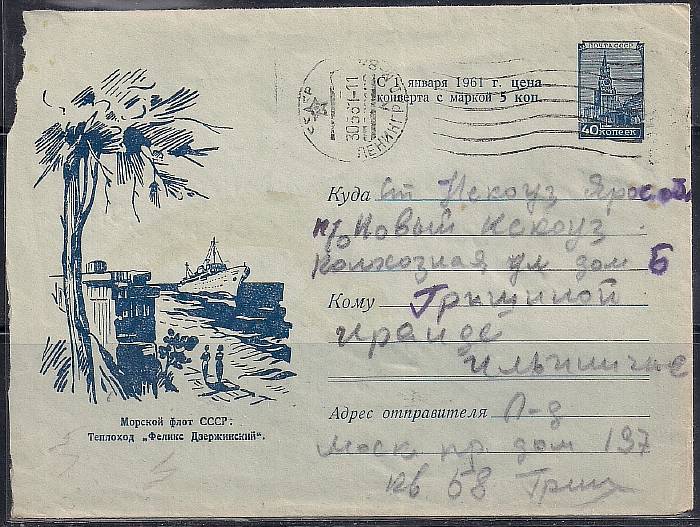 ПОЧТА СССР
40 КОПЕЕК
С 1 января 1961 г. цена
конверта с маркой 5 коп.
СССР
ЛЕНИНГРАД
Куда ст Некоуз Яросл
п/о Новый Некоуз
Колхозная ул дом 6
Кому Грищиной
Ираиде
Адрес отправителя Л-д
Моск пр. дом 197
кв 68 Грищ
Морской флот СССР:
Теплоход „Феликс Дзержинский".